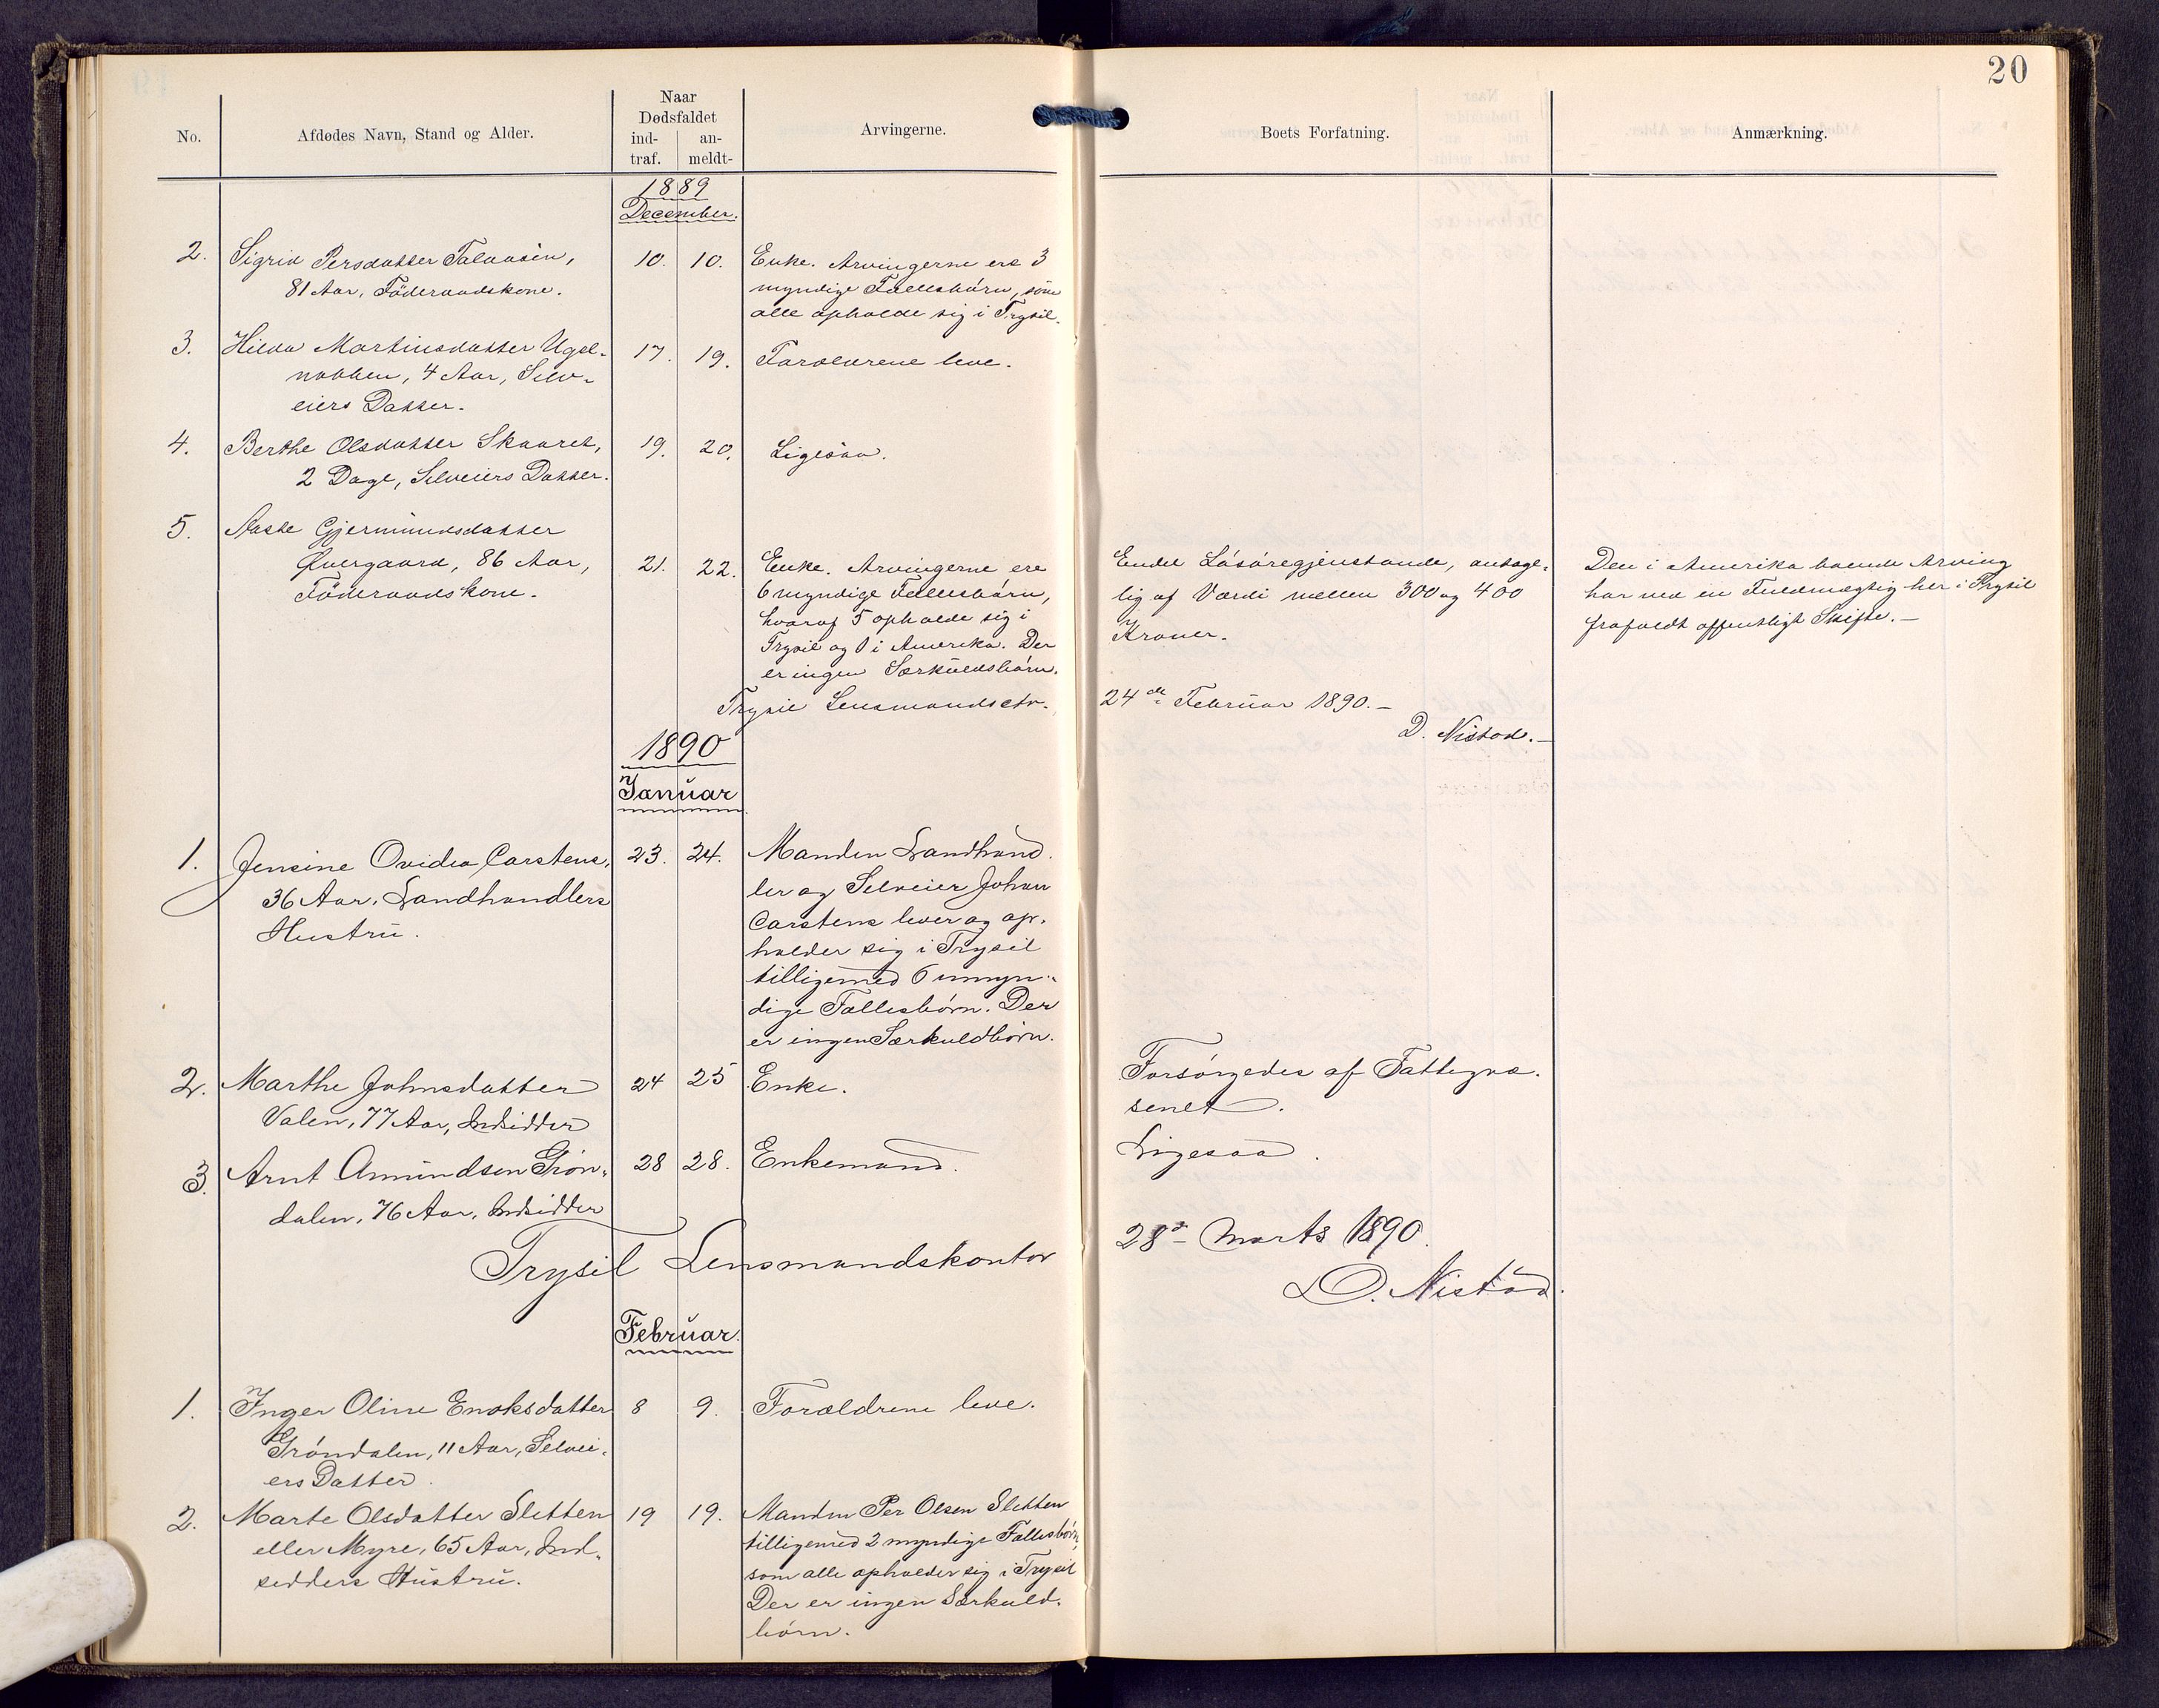 20
No.
Afdødes Navn, Stand og Alder.
Naar
Dødsfaldet
ind-
traf.
an-
meldt-
Arvingerne.
Boets Forfatning.
Anmærkning.
1889
December.
2. Sigrid Persdatter
81 Aar, Föderaadskone.
10. 10.
Enke. Arvingerne ere 3
myndige Fællesbórn, som
alle opholde sig i Trysil.
3. Hilda Martinsdatter Ugel-
nabben, 4 Aar, Selv-
eiers Datter.
17. 19.
Forældrene leve.
4. Berthe Olsdatter Skaaret,
2 Dage, Selveiers Datter.
19. 20.
Ligesaa.
5. Aaste Gjermundsdatter
Øvergaard, 86 Aar,
Föderaadskone.
21. 22.
Enke. Arvingerne ere
6 myndige Fællesbórn,
hvoraf 5 opholde sig i
Trysil og 1 i Amerika. Der
er ingen Særkuldsbórn.
Endel Lósóregjenstande, antage-
lig af Værdi mellem 300 og 400
Kroner.
Den i Amerika boende Arving
har ved en Fuldmægtig her i Trysil
forlangt offentligt Skifte.-
Trysil Lensmandsctr.
24de Februar 1890.-
D. Nistad.-
1890
Januar
1. Jensine Ovidia Carstens,
36 Aar, Landhandlers
Hustru.
23. 24.
Manden Landhand-
ler og Selveier Johan
Carstens lever og op-
holder sig i Trysil
tilligemed 6 umyn-
dige Fællesbórn. Der
er ingen Særkuldbórn.
2. Marthe Johnsdatter
Valen, 77 Aar, Indsidder
24 25
Enke.
Forsórgedes af Fattigvæ-
senet.
3. Arnt Amundsen Grön-
dalen, 76 Aar, Indsidder
28 28.
Enkemand.
Ligesaa.
Trysil Lensmandskontor
28de Marts 1890.
D. Nistad.
Februar.
1. Inger Oline Enoksdatter
Gróndalen, 11 Aar, Selvei-
ers Datter.
8 9.
Forældrene leve.
2. Marte Olsdatter Sletten
eller Myre, 65 Aar, Ind-
sidders Hustru.
19 19.
Manden Per Olsen Sletten
tilligemed 2 myndige Fællesbórn,
som alle opholder sig i Trysil
Der er ingen Særkuld-
bórn.